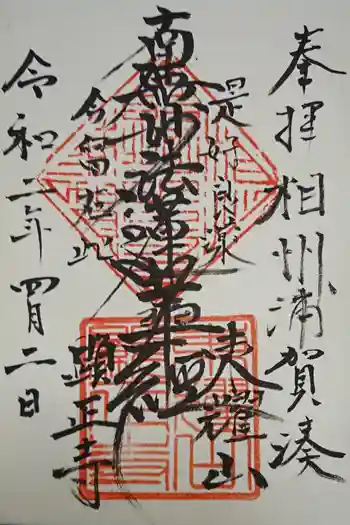 奉拝相州浦賀湊
是好良薬
南無妙法蓮華経
今留在此
東耀山
顕正寺
令和二年四月二日